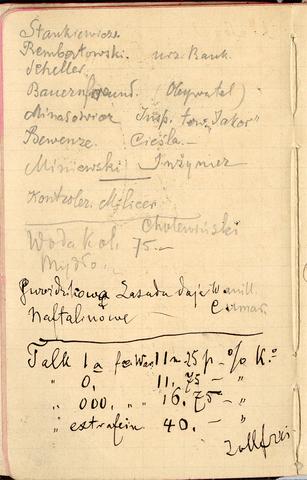 Stankiewicz.
Rembertowski. urz. Bank.
Scheller.
Bauernfreund. (Obywatel)
Minasowicz Insp. tow. "Jakor"
Bewenze. Cieśla. —
Miniewski Inżynier
Kontroler. Milicer
Cholewiński
Woda Kol. 75.—
Mydło.
Gwoździkowa Zasada daje Wanill.
Naftalinowe —
Talk 1a fco War. 11 25 p — % K.o
" 0. 11. 75 — "
" 000. " " 16. 75 — "
" extrafein 40. — "